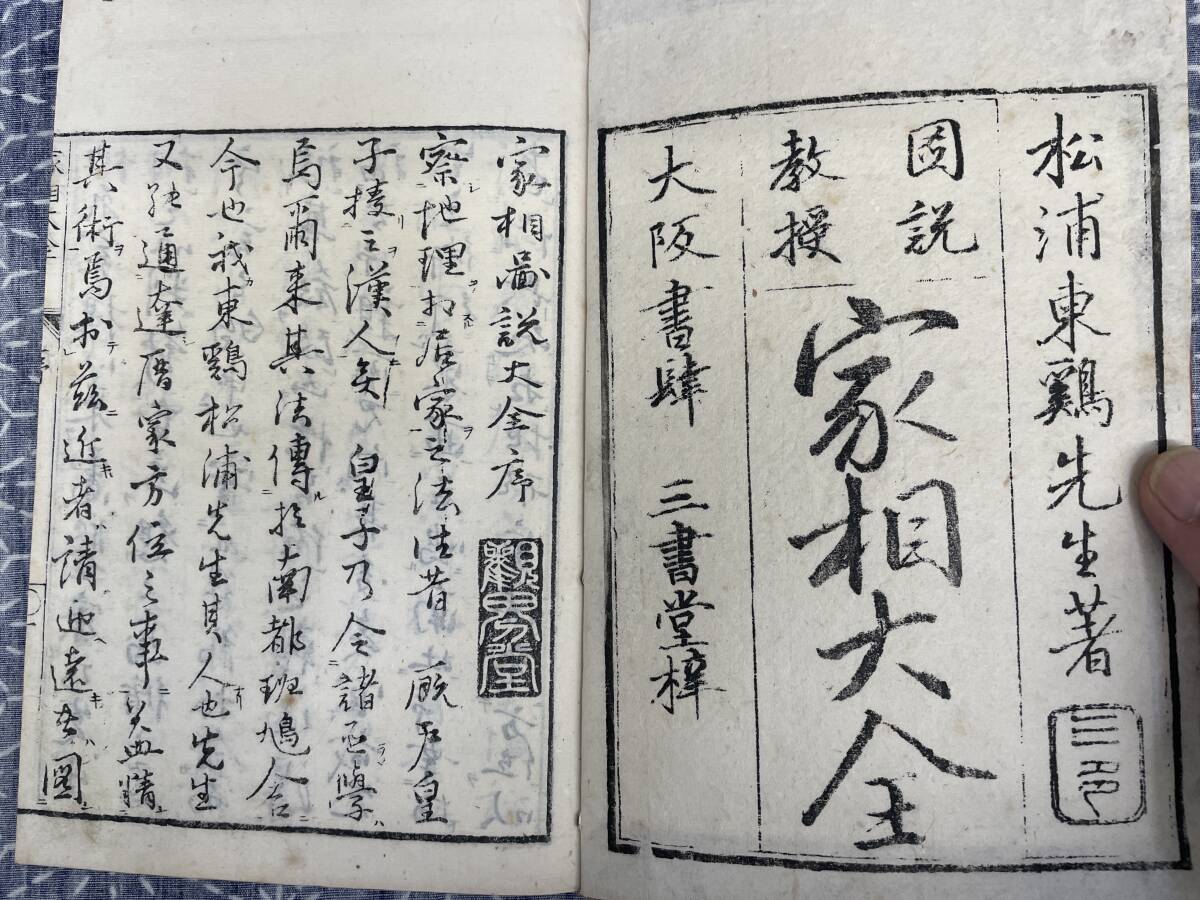 松浦東鷄先生著
図説
教授
家相大全
大阪書肆 三書堂梓
家相圖説大全序
察地理相居家之法往昔 厩戸皇
子授之漢人矣 皇子乃令諸臣學
焉爾来其法傳於南都班鳩舎
今也我東鷄松浦先生其人也先生
又能通達暦家方位之事益精
其術焉於茲近者請迎遠者圖